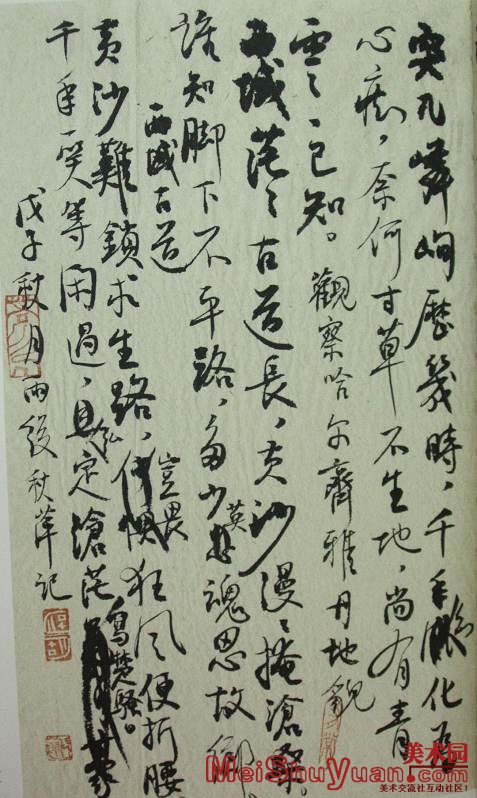 突兀嶙峋歷幾時，千年化
心痴，奈何寸草不生地，尚有青
雲々已知。觀察哈尔齊雅丹地貌
西域茫々古道長，黄沙漫々掩滄桑。
誰知脚下不平路，多少英魂思故鄉。
西域古道
黄沙難鎖求生路，豈畏狂风便折腰
千年一笑等闲過，定滄茫寫楚騷。
戊子秋月雨後秋萍记
美术园
MeiShuYuan.com
美术交流社互动社区!